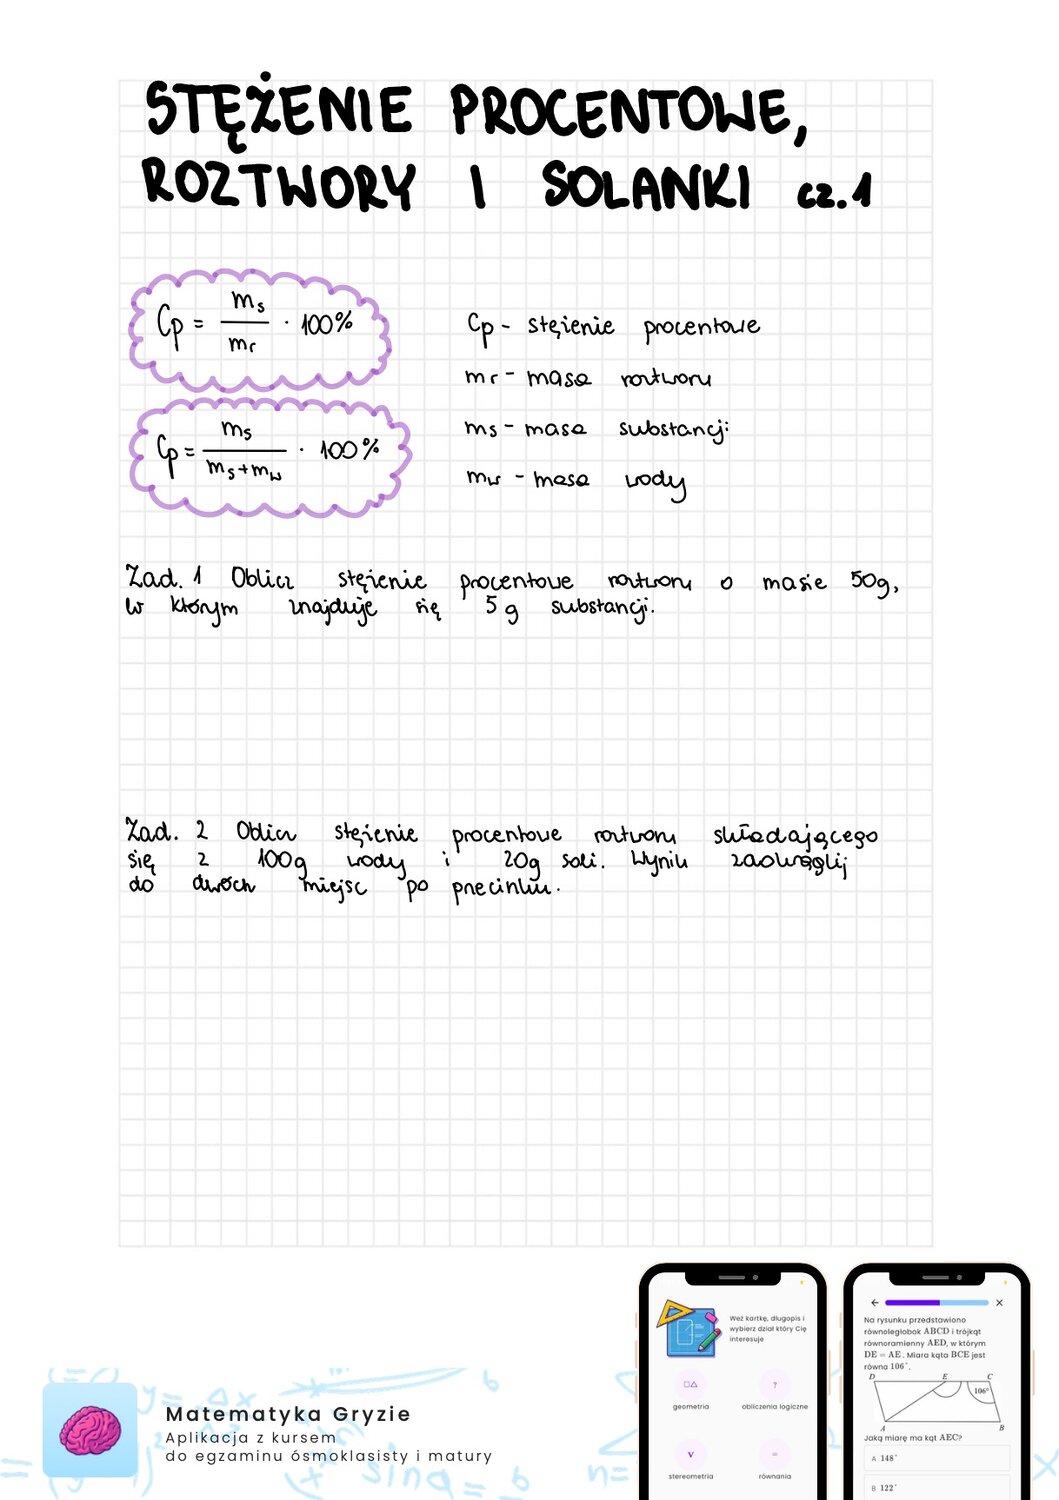 STĘŻENIE PROCENTOWE,
ROZTWORY I SOLANKI cz.1
Cp = ms / mr · 100%
Cp - stężenie procentowe
mr - masa roztworu
Cp = ms / ms+mw · 100%
ms - masa substancji
mw - masa wody
Zad. 1 Oblicz stężenie procentowe roztworu o masie 50g,
w którym znajduje się 5g substancji.
Zad. 2 Oblicz stężenie procentowe roztworu składającego
się z 100g wody i 20g soli. Wynik zaokrąglij
do dwóch miejsc po przecinku.
Weź kartkę, długopis i
wybierz dział który Cię
interesuje
geometria
?
obliczenia logiczne
V
stereometria
=
równania
Na rysunku przedstawiono
równoległobok ABCD i trójkąt
równoramienny AED, w którym
DE = AE. Miara kąta BCE jest
równa 106°.
D E C
106°
A B
Jaką miarę ma kąt AEC?
A 148°
B 122°
Matematyka Gryzie
Aplikacja z kursem
do egzaminu ósmoklasisty i matury